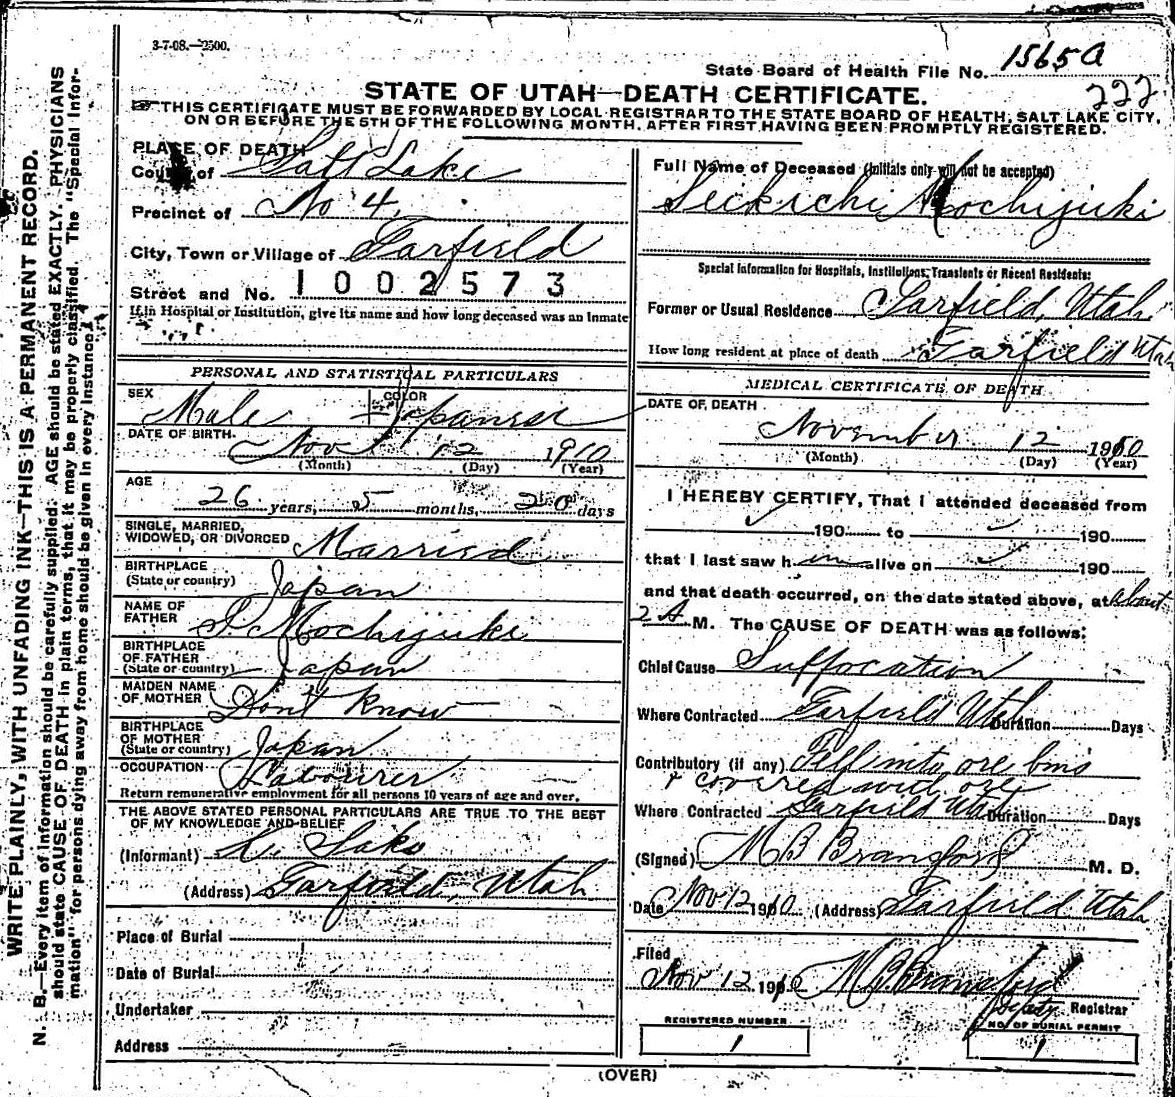 3-7-08.—2500.
State Board of Health File No. 1565a
222
STATE OF UTAH—DEATH CERTIFICATE.
THIS CERTIFICATE MUST BE FORWARDED BY LOCAL REGISTRAR TO THE STATE BOARD OF HEALTH, SALT LAKE CITY,
ON OR BEFORE THE 5TH OF THE FOLLOWING MONTH, AFTER FIRST HAVING BEEN PROMPTLY REGISTERED.
WRITE PLAINLY, WITH UNFADING INK—THIS IS A PERMANENT RECORD.
N. B.—Every item of information should be carefully supplied. AGE should be stated EXACTLY. PHYSICIANS
should state CAUSE OF DEATH in plain terms, that it may be properly classified. The "Special Infor-
mation" for persons dying away from home should be given in every instance.
PLACE OF DEATH
County of Salt Lake
Precinct of No 4
City, Town or Village of Garfield
Street and No. 1002573
If in Hospital or Institution, give its name and how long deceased was an Inmate
PERSONAL AND STATISTICAL PARTICULARS
SEX Male COLOR Japanese
DATE OF BIRTH Nov 12 1910
(Month) (Day) (Year)
AGE
26 years, 5 months, 20 days
SINGLE, MARRIED,
WIDOWED, OR DIVORCED Married
BIRTHPLACE
(State or country) Japan
NAME OF
FATHER Mochijuki
BIRTHPLACE
OF FATHER
(State or country) Japan
MAIDEN NAME
OF MOTHER Dont Know
BIRTHPLACE
OF MOTHER
(State or country) Japan
OCCUPATION Labourer
Return remunerative employment for all persons 10 years of age and over.
THE ABOVE STATED PERSONAL PARTICULARS ARE TRUE TO THE BEST
OF MY KNOWLEDGE AND BELIEF
(Informant) K. Sako
(Address) Garfield, Utah
Place of Burial
Date of Burial
Undertaker
Address
Full Name of Deceased (Initials only will not be accepted)
Seikichi Mochijuki
Special Information for Hospitals, Institutions, Transients or Recent Residents:
Former or Usual Residence Garfield, Utah
How long resident at place of death Garfield Utah
MEDICAL CERTIFICATE OF DEATH
DATE OF DEATH
November 12 1910
(Month) (Day) (Year)
I HEREBY CERTIFY, That I attended deceased from
190 to 190
that I last saw h im alive on 190
and that death occurred, on the date stated above, at about
2 A M. The CAUSE OF DEATH was as follows:
Chief Cause Suffocation
Where Contracted Garfield Utah Duration Days
Contributory (if any) Fell into ore bins
& covered with ore
Where Contracted Garfield Utah Duration Days
(Signed) M B Bransford M. D.
Date Nov 12 1910 (Address) Garfield Utah
Filed
Nov 12 1910 M. B. Bransford
Deputy Registrar
REGISTERED NUMBER
1
NO. OF BURIAL PERMIT
1
(OVER)